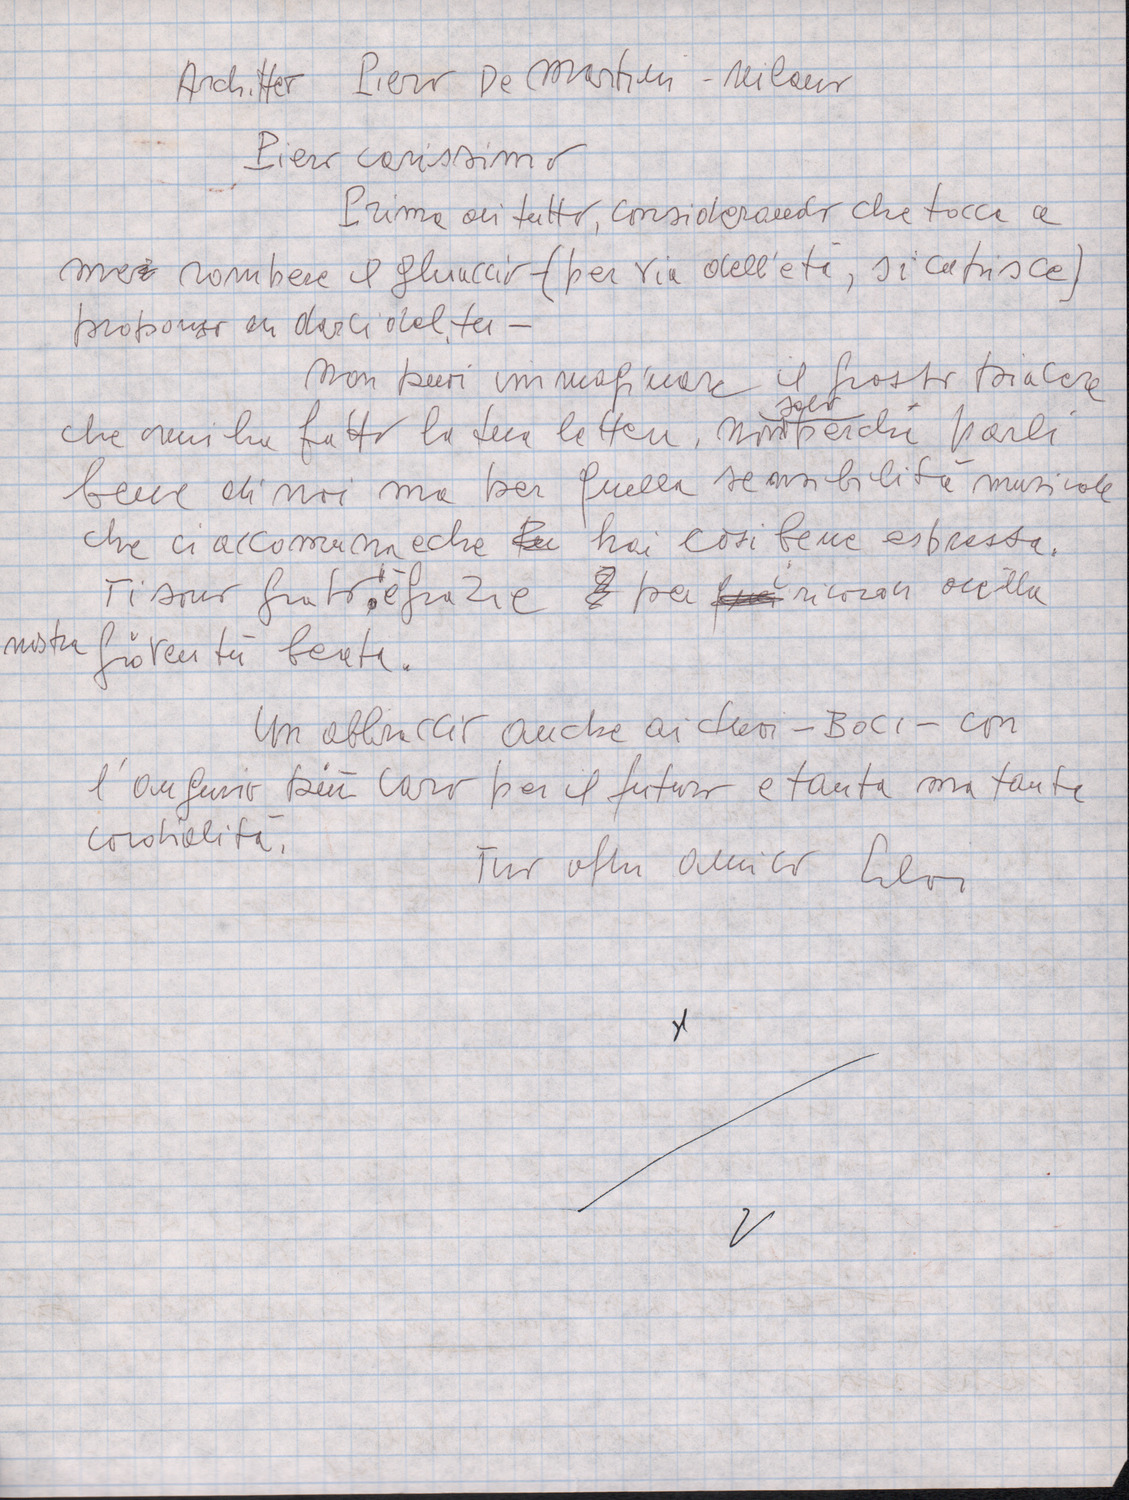 Architetto Piero De Martini - Milano
Piero carissimo
Prima di tutto, considerando che tocca a
me rompere il ghiaccio - (per via dell'età, si capisce)
propongo di darci del tu -
Non puoi immaginare il grosso piacere
che mi ha fatto la tua lettera, non solo perché parli
bene di noi ma per quella sensibilità musicale
che ci accomuna e che hai così bene espressa.
Ti sono grato e grazie per i ricordi della
nostra gioventù beata.
Un abbraccio anche ai tuoi - Boci - con
l'augurio più caro per il futuro e tanta ma tanta
cordialità.
Tuo aff.mo amico